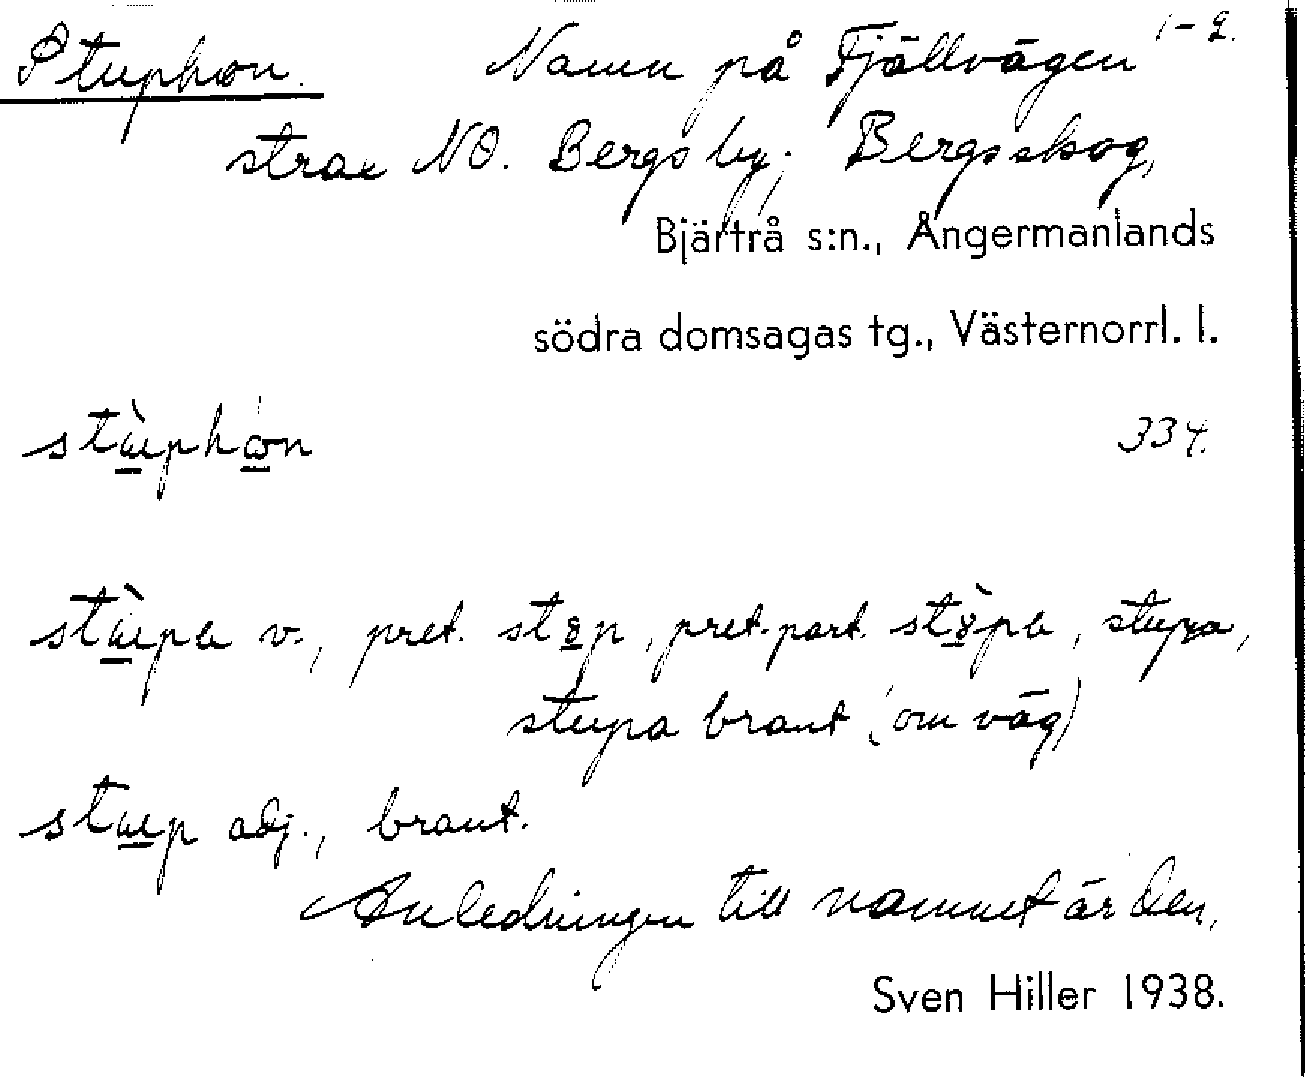 Stuphon. Namn på Fjällvägen 1-2.
strax NO. Bergs by; Bergs skog,
Bjärtrå s:n., Ångermanlands
södra domsagas tg., Västernorrl. l.
stùphón 334.
stùpa v., pret. step, pret. part. stöpa, stupa,
stupa brant (om väg)
stup adj., brant.
Anledningen till namnet är den,
Sven Hiller 1938.